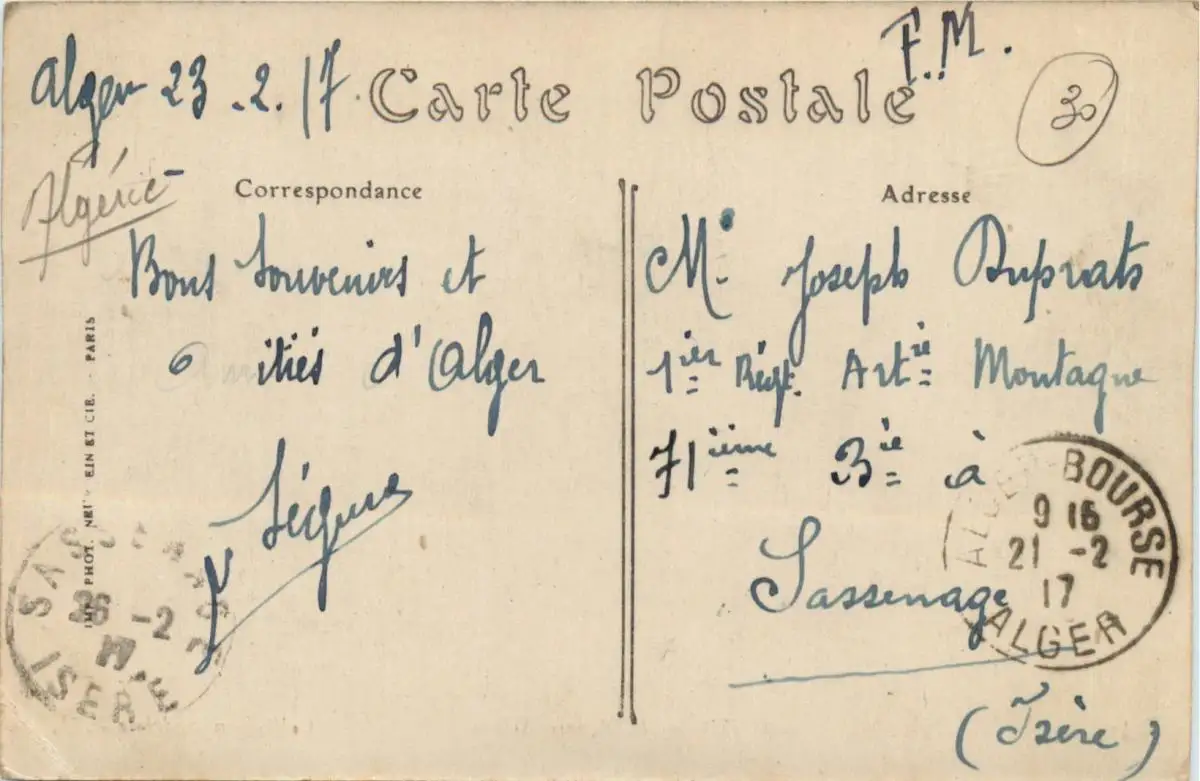 F.M.
Alger 23.2.17
Carte Postale
30
Algérie
Correspondance
Bons Souvenirs et
amitiés d'Alger
Adresse
Mr. Joseph Duprats
1ier Régt. Artie Montagne
71ième Bie à
Sassenage
(Isère)
IMP. PHOT. NEURDEIN ET CIE. - PARIS
SASSENAGE
26 -2
17
ISERE
ALGER-BOURSE
9 15
21 -2
17
ALGER